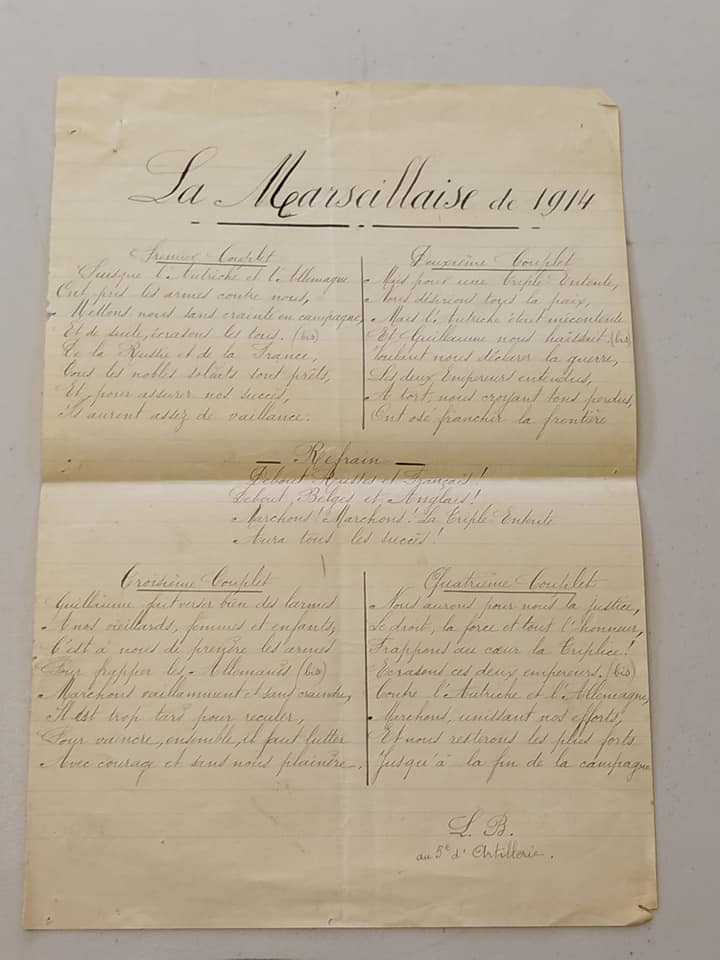 La Marseillaise de 1914
Premier Couplet
Puisque l'Autriche et l'Allemagne
Ont pris les armes contre nous,
Mettons nous sans crainte en campagne,
Et de suite, écrasons les tous. (bis)
De la Russie et de la France,
Tous les nobles soldats sont prêts,
Et pour assurer nos succès,
Ils auront assez de vaillance.
Deuxième Couplet
Mais pour une Triple-Entente,
Nous désirions tous la paix,
Mais l'Autriche était mécontente
Et Guillaume nous haïssait. (bis)
Voulant nous déclarer la guerre,
Les deux Empereurs entendus,
A tort, nous croyant tous perdus,
Ont osé franchir la frontière
Refrain
Debout, Russes et Français!
Debout, Belges et Anglais!
Marchons! Marchons! La Triple-Entente
Aura tous les succès!
Troisième Couplet
Guillaume fait verser bien des larmes
A nos vieillards, femmes et enfants,
C'est à nous de prendre les armes
Pour frapper les Allemands (bis)
Marchons vaillamment et sans craindre,
Il est trop tard pour reculer,
Pour vaincre, ensemble, il faut lutter
Avec courage et sans nous plaindre.
Quatrième Couplet
Nous aurons pour nous la justice,
Le droit, la force et tout l'honneur,
Frappons au cœur la Triplice!
Ecrasons ces deux empereurs. (bis)
Contre l'Autriche et l'Allemagne,
Marchons, unissant nos efforts,
Et nous resterons les plus forts
Jusqu'à la fin de la campagne
L. B.
au 5e d'Artillerie.